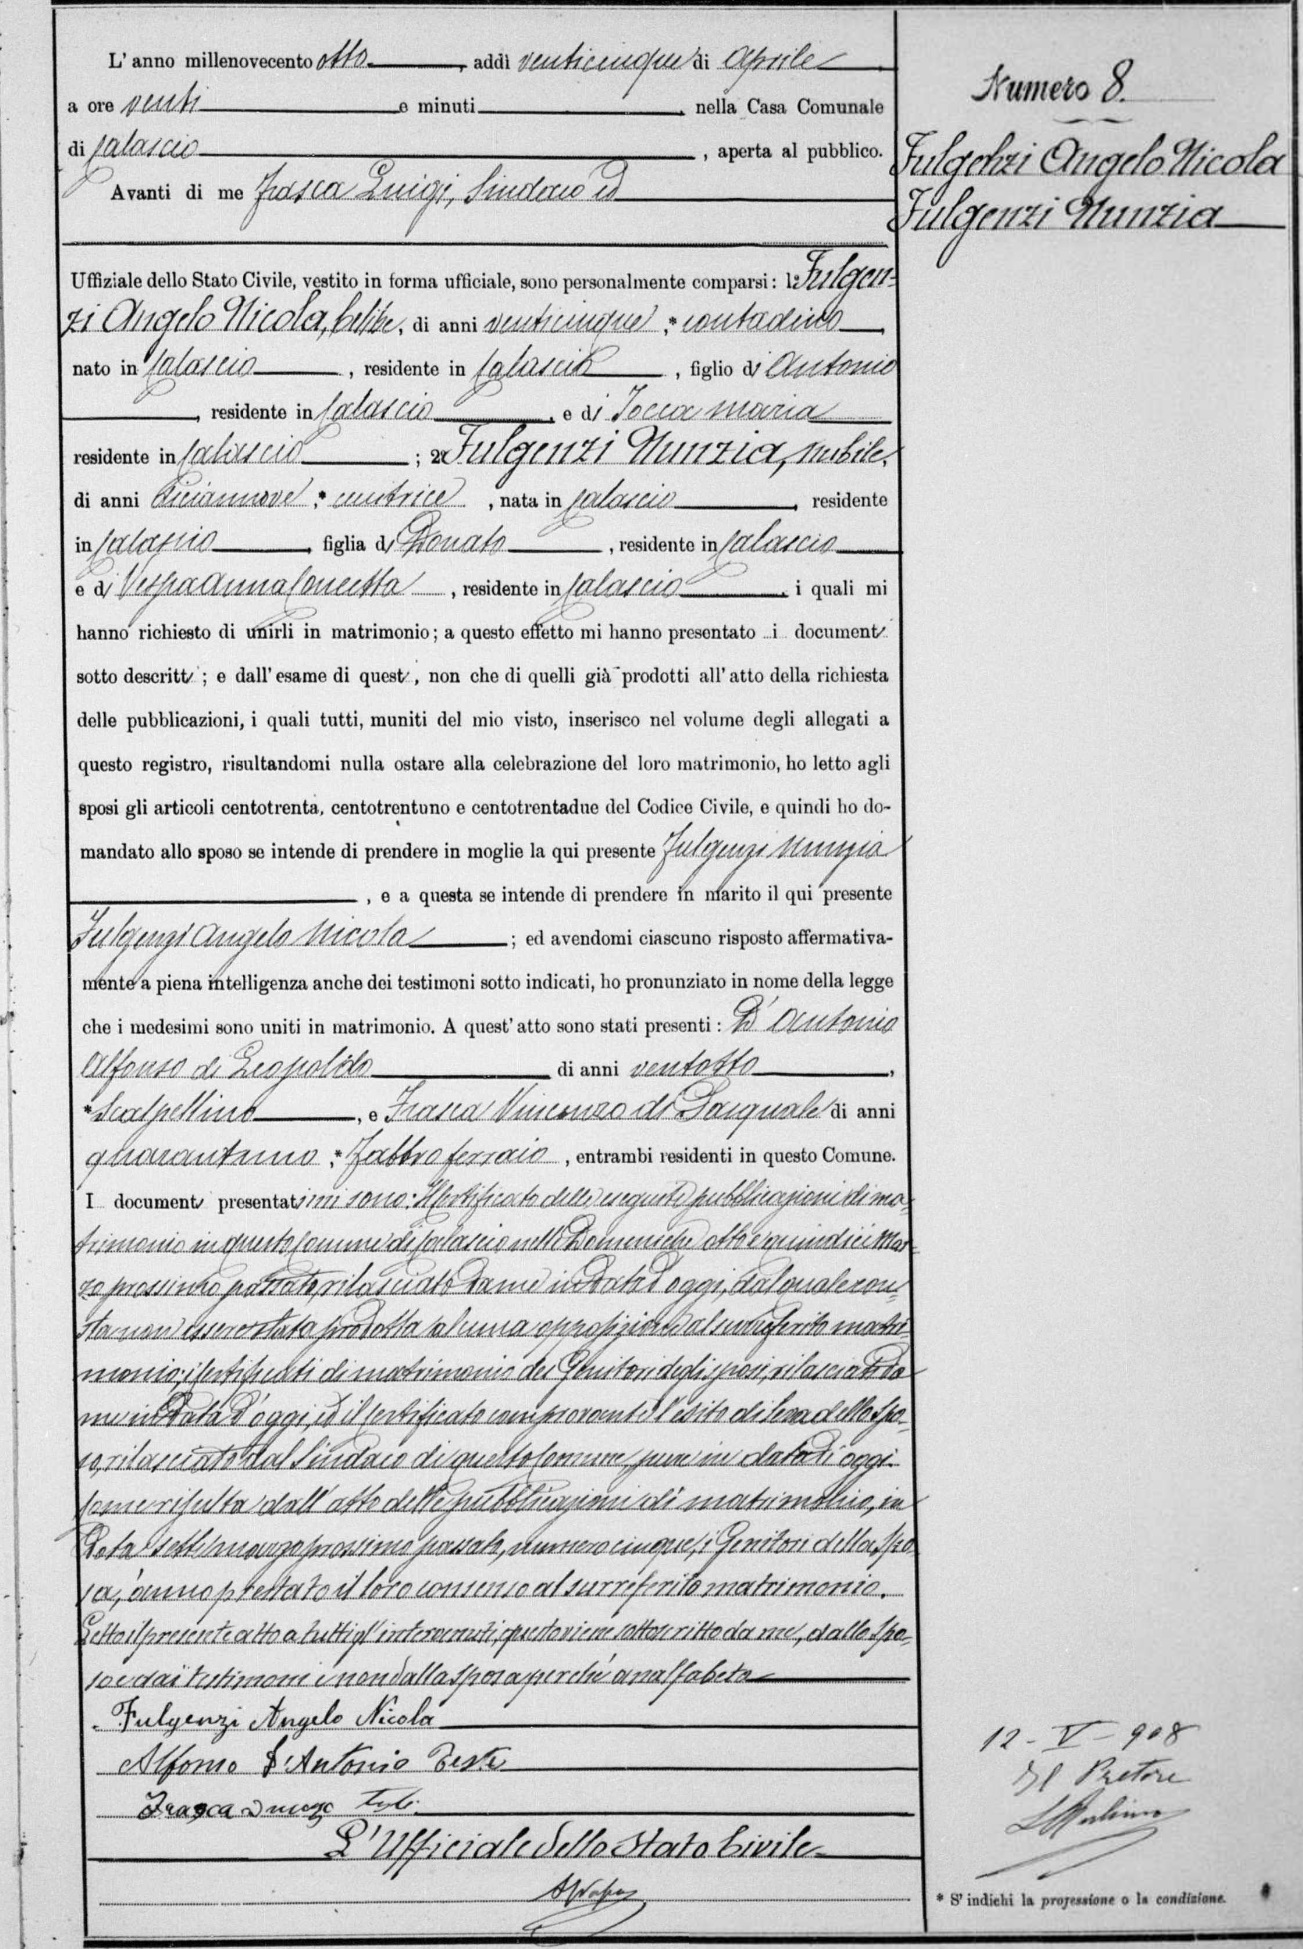 L'anno millenovecento otto, addì venticinque di Aprile
a ore venti e minuti, nella Casa Comunale
di Calascio, aperta al pubblico.
Avanti di me Frasca Luigi, Sindaco ed
Uffiziale dello Stato Civile, vestito in forma ufficiale, sono personalmente comparsi: 1º Fulgen-
zi Angelo Nicola, celibe, di anni venticinque, * contadino,
nato in Calascio, residente in Calascio, figlio di Antonio
, residente in Calascio, e di Iocca Maria
residente in Calascio; 2º Fulgenzi Nunzia, nubile,
di anni diciannove, *, nata in Calascio, residente
in Calascio, figlia di Donato, residente in Calascio
e di Vespa Anna Concetta, residente in Calascio, i quali mi
hanno richiesto di unirli in matrimonio; a questo effetto mi hanno presentato i documenti
sotto descritti; e dall'esame di questi, non che di quelli già prodotti all'atto della richiesta
delle pubblicazioni, i quali tutti, muniti del mio visto, inserisco nel volume degli allegati a
questo registro, risultandomi nulla ostare alla celebrazione del loro matrimonio, ho letto agli
sposi gli articoli centotrenta, centotrentuno e centotrentadue del Codice Civile, e quindi ho do-
mandato allo sposo se intende di prendere in moglie la qui presente Fulgenzi Nunzia
, e a questa se intende di prendere in marito il qui presente
Fulgenzi Angelo Nicola; ed avendomi ciascuno risposto affermativa-
mente a piena intelligenza anche dei testimoni sotto indicati, ho pronunziato in nome della legge
che i medesimi sono uniti in matrimonio. A quest'atto sono stati presenti: D'Antonio
Alfonso di Leopoldo di anni ventotto,
* Scalpellino, e Frasca Vincenzo di Pasquale di anni
quarantuno, * Fabbro ferraio, entrambi residenti in questo Comune.
I documenti presentatimi sono: Il certificato delle eseguite pubblicazioni di ma-
trimonio in questo Comune di Calascio nelle Domeniche otto e quindici Mar-
zo prossimo passato, rilasciato da me in data d'oggi, dal quale con-
sta non essere stata prodotta alcuna opposizione al surriferito matri-
monio; i certificati di matrimonio dei Genitori degli sposi, rilasciati da
me in data d'oggi, ed il certificato comprovante l'esito di leva dello spo-
so, rilasciato dal Sindaco di questo Comune, pure in data di oggi.
Come risulta dall'atto delle pubblicazioni di matrimonio, in
data sette marzo prossimo passato, numero cinque, i Genitori della spo-
sa, ànno prestato il loro consenso al surriferito matrimonio.
Letto il presente atto a tutti gl'intervenuti, questo viene sottoscritto da me, dallo spo-
so e dai testimoni e non dalla sposa perché analfabeta
Fulgenzi Angelo Nicola
Alfonso D'Antonio Teste
Frasca
L'Ufficiale dello Stato Civile
Numero 8.
Fulgenzi Angelo Nicola
Fulgenzi Nunzia
12 - V - 908
Il Pretore
* S'indichi la professione o la condizione.